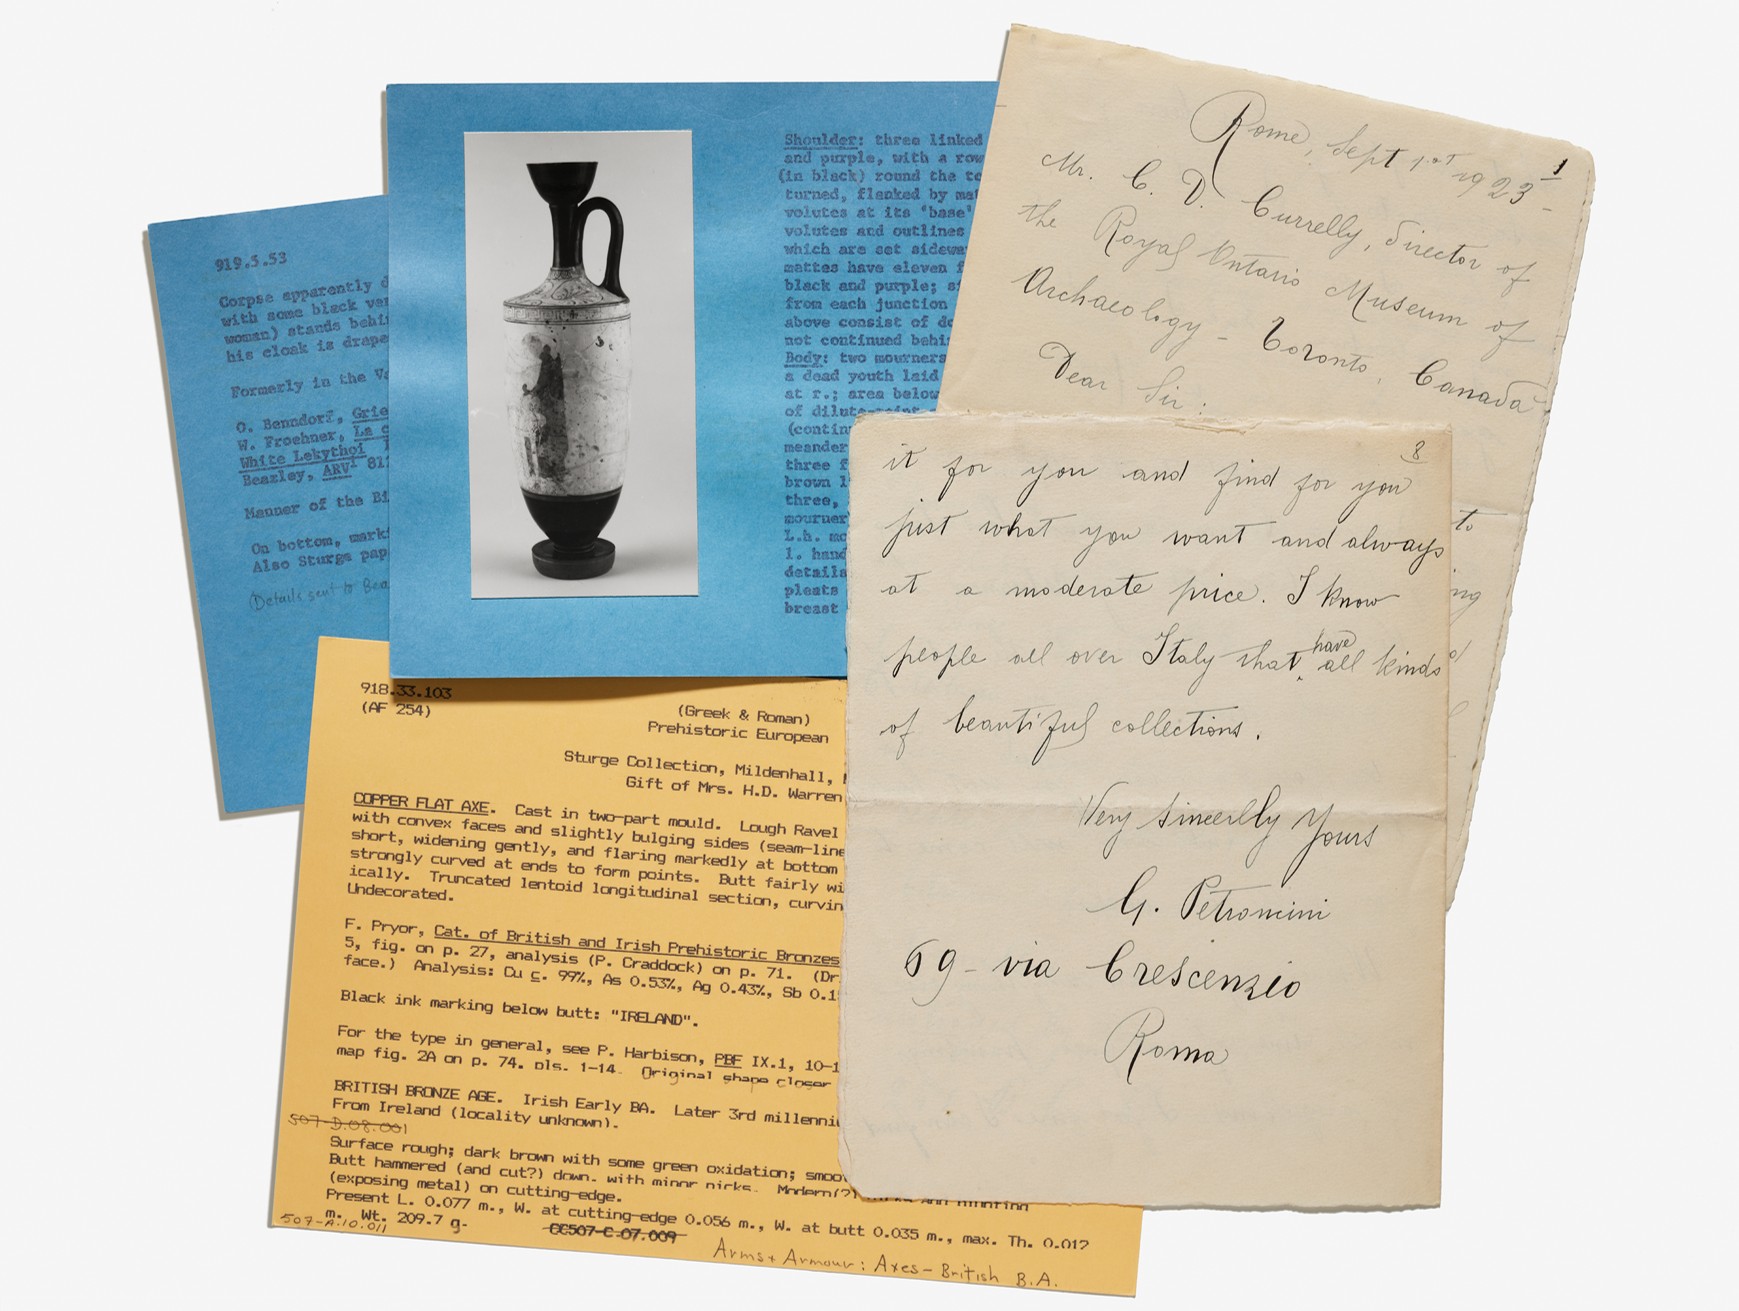 919.5.53
Corpse apparently d
with some black
woman) stands behi
his cloak is drape
Formerly in the
O. Benndorf, Grie
W. Froehner, La c
White Lekythoi
Beazley, ARV¹ 81
Manner of the
On bottom, mark
Also Sturge pap
(Details sent to Bea
Shoulder: three linked
and purple, with a row
(in black) round the
turned, flanked by
volutes at its 'base'
volutes and outlines
which are set sideway
mattes have eleven
black and purple;
from each junction
above consist of
not continued behi
Body: two mourners
a dead youth laid
at r.; area below
of dilute
(contin
meander
three f
brown l
three,
mourner
L.h. mo
l. hand
details
pleats
breast
918.33.103
(AF 254)
(Greek & Roman)
Prehistoric European
Sturge Collection, Mildenhall,
Gift of Mrs. H.D. Warren
COPPER FLAT AXE. Cast in two-part mould. Lough Ravel
with convex faces and slightly bulging sides (seam-line
short, widening gently, and flaring markedly at bottom
strongly curved at ends to form points. Butt fairly wi
ically. Truncated lentoid longitudinal section, curvin
Undecorated.
F. Pryor, Cat. of British and Irish Prehistoric Bronzes
5, fig. on p. 27, analysis (P. Craddock) on p. 71. (Dr
face.) Analysis: Cu c. 99%, As 0.53%, Ag 0.43%, Sb 0.1
Black ink marking below butt: "IRELAND".
For the type in general, see P. Harbison, PBF IX.1, 10-1
map fig. 2A on p. 74. pls. 1-14. Original shape closer
BRITISH BRONZE AGE. Irish Early BA. Later 3rd millenni
From Ireland (locality unknown).
507-D.08.001
Surface rough; dark brown with some green oxidation; smoo
Butt hammered (and cut?) down, with minor nicks. Modern(?)
(exposing metal) on cutting-edge.
Present L. 0.077 m., W. at cutting-edge 0.056 m., W. at butt 0.035 m., max. Th. 0.012
m. Wt. 209.7 g.
507-A.10.011
CC507-C.07.009
Arms + Armour: Axes - British B.A.
1
Rome, Sept 1st 1923 -
Mr. C. D. Currelly, director of
the Royal Ontario Museum of
Archaeology - Toronto, Canada -
Dear Sir:
to
ng
8
it for you and find for you
just what you want and always
at a moderate price. I know
people all over Italy that have all kinds
of beautiful collections.
Very sincerlly yours
G. Petroncini
69 - via Crescenzio
Roma